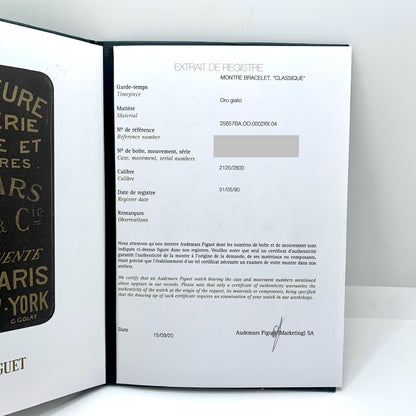 EURE
ERIE
E ET
RES.
ARS
& Cie
UENTE
PARIS
-YORK
C. COLAT
GUET
EXTRAIT DE REGISTRE
MONTRE BRACELET, "CLASSIQUE"
Garde-temps
Timepiece
Oro giallo
Matière
Material
25657BA.OO.0002XX.04
N° de référence
Reference number
N° de boîte, mouvement, série
Case, movement, serial numbers
Calibre
Calibre
2120/2800
Date de registre
Register date
31/05/90
Remarques
Observations
Nous attestons qu'une montre Audemars Piguet dont les numéros de boîte et de mouvement sont
indiqués ci-dessus figure dans nos registres. Veuillez noter que seul un certificat d'authenticité
garantit l'authenticité de la montre à l'origine de la demande, de ses matériaux ou composants,
étant précisé que l'établissement d'un tel certificat nécessite un examen de votre montre dans nos
ateliers.
We certify that an Audemars Piguet watch bearing the case and movement numbers mentioned
above appears in our records. Please note that only a certificate of authenticity warrants the
authenticity of the watch at the origin of the request, its materials or components, being specified
that the drawing up of such certificate requires an examination of your watch in our workshops.
Date
15/09/20
Audemars Piguet (Marketing) SA